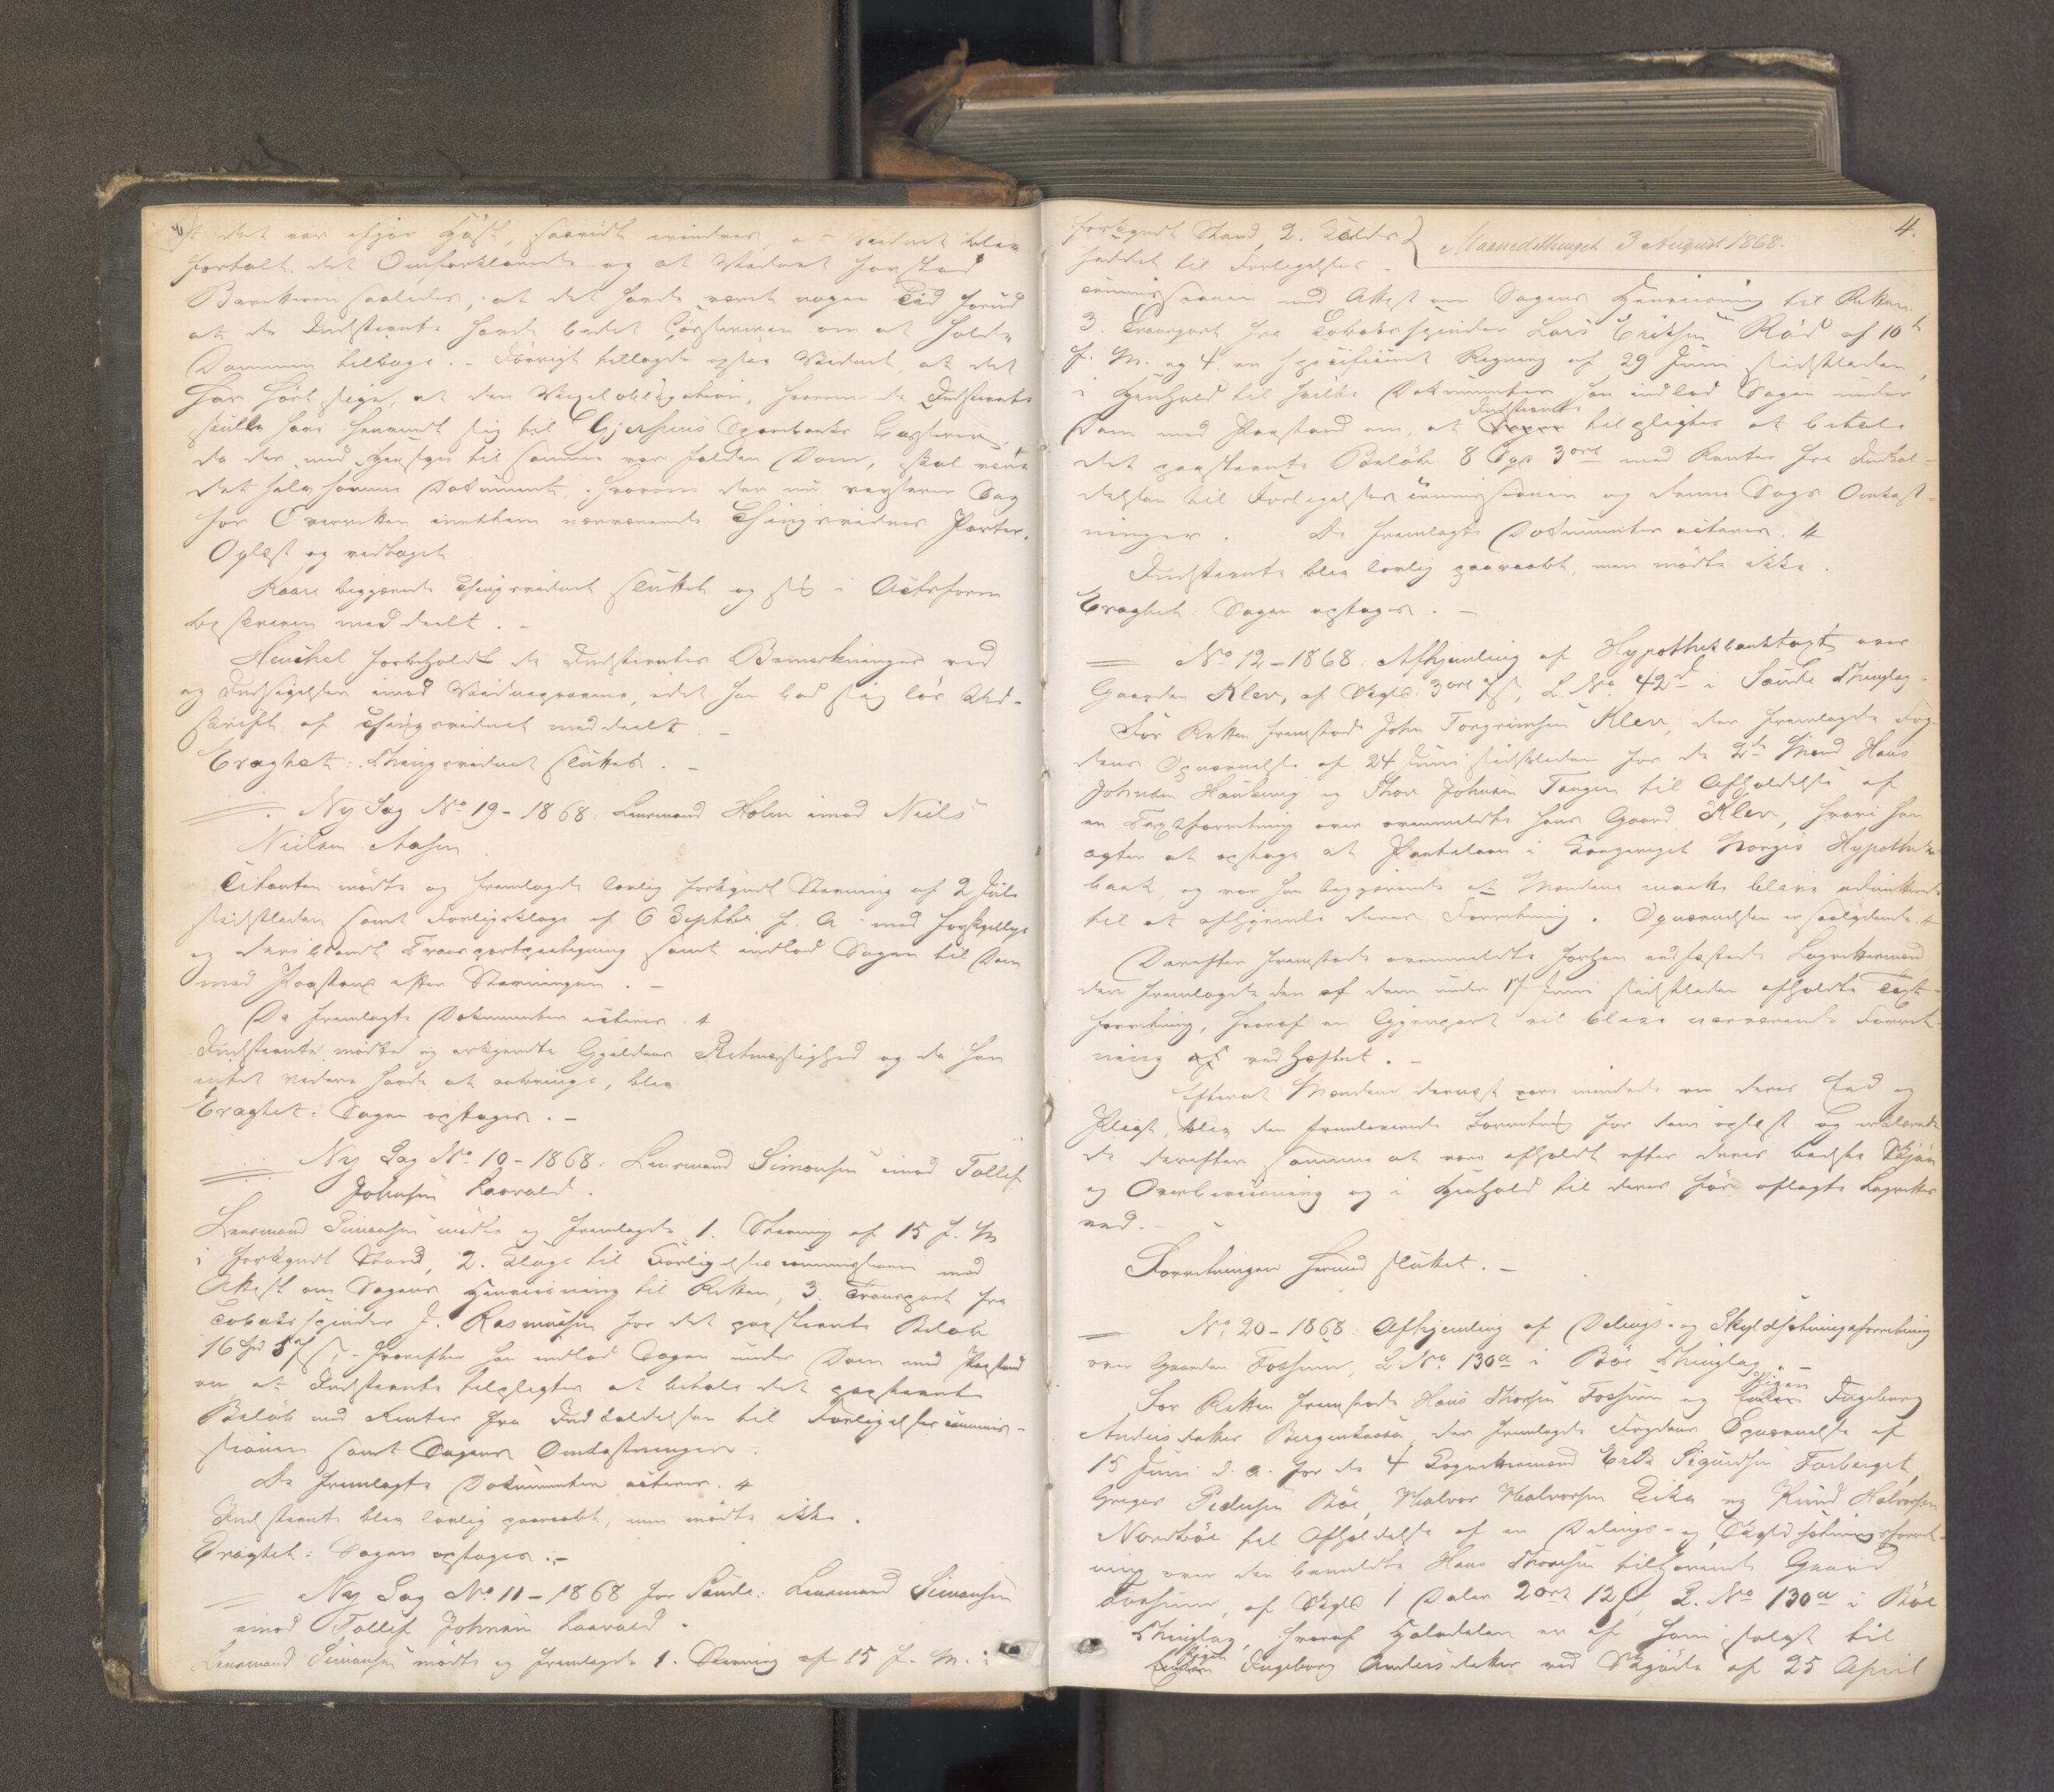 det var ifjor Høst, saavidt erindres, at Vidnet blev
fortalt det Omforklarede og at Vidnet forstod
saaledes, at det havde været nogen Tid forud
at de Indstevnte havde bedet om at holde
Dommen tilbage. - Forøvrigt tillagde Vidnet, at det
har hørt sige, at den Vexelobligation, hvorom de Indstevnte
skulle have henvendt sig til Gjerpens Sparebanks
da der med Hensyn til samme var falden Dom, skal være
det selv samme Dokument, hvorom der nu verserer Sag
for Overretten imellem nærværende Thingsvidnes Parter.
Oplæst og vedtaget
Kaare begjærede Thingsvidnet sluttet og sig i Actsform
beskreven meddeelt. -
Henchel forbeholdt de Indstevntes Bemærkninger ved
og Indsigelser imod Vidneprovene, idet han bad sig Ud-
skrift af Thingsvidnet meddeelt. -
Eragtet: Thingsvidnet sluttes. -
Ny Sag No 19 - 1868: Lensmand Holm imod Niels
Nielsen Aasen
Citanten mødte og fremlagde lovlig forkyndt Stevning af 2 Juli
sidstleden samt Forligsklage af 6 Septbr. f. A. med
og deriblandt Transportpaategning samt indlod Sagen til Dom
med Paastand efter Stevningen. -
De fremlagte Dokumenter acteres. 4
Indstevnte mødte og erkjendte Gjældens Retmæssighed og da han
intet videre havde at anbringe, blev
Eragtet: Sagen optages. -
Ny Sag No 10 - 1868: Lensmand Simonsen imod Tollef
Johnsen Haavald.
Lensmand Simonsen mødte og fremlagde 1. Stevning af 15 f. M
i forkyndt Stand, 2. Klage til Forligelsescommissionen med
Attest om Sagens Henvisning til Retten, 3. Transport fra
Tobaksspinder J. Rasmussen for det paastevnte Beløb
16 Spd - hvorefter han indlod Sagen under Dom med Paastand
om at Indstevnte tilpligtes at betale det paastevnte
Beløb med Renter fra Indkaldelsen til Forligelsescommis-
sionen samt Sagens Omkostninger.
De fremlagte Dokumenter acteres. 4
Indstevnte blev lovlig paaraabt, men mødte ikke.
Eragtet: Sagen optages. -
Ny Sag No 11 - 1868 for Saude: Lensmand Simonsen
imod Tollef Johnsen Haavald.
Lensmand Simonsen mødte og fremlagde 1. Stevning af 15 f. M. i
4.
Maanedsthinget 3 August 1868.
forkyndt Stand, 2.
til Forligelses-
commissionen med Attest om Sagens Henviisning til Retten.
3. Transport fra Tobaksspinder Lars Eriksen Rød af 10de
f. M. og 4. en specificeret Regning af 29 Juni sidstleden,
i Henhold til hvilke Dokumenter han indlod Sagen under
Dom med Paastand om, at Indstevnte tilpligtes at betale
det paastevnte Beløb 8 Spd 3 ort med Renter fra Indkal-
delsen til Forligelsescommissionen og denne Sags Omkost-
ninger. De fremlagte Dokumenter acteres. 4
Indstevnte blev lovlig paaraabt, men mødte ikke.
Eragtet: Sagen optages. -
No 12 - 1868: Afhjemling af Hypothekbanktaxt over
Gaarden Klev, af Skyld 3 ort, L. No 42d i Saude Thinglag.
For Retten fremstod John Torgrimsen Klev, der fremlagde Fog-
dens Opnævnelse af 24 Juni sidstleden for de 2de Mænd Hans
Johnsen Haukvig og Thor Johnsen Tangen til Afholdelse af
en Taxtforretning over ovenmeldte hans Gaard Klev, hvori han
agter at optage et Pantelaan i Kongeriget Norges Hypothek-
bank, og var han begjærende at Mændene maatte blive admitterede
til at afhjemle deres Forretning. Opnævnelsen er saalydende. 4
Derefter fremstode ovenmeldte Lagrettesmænd
der fremlagde den af dem under 17 Juni sidstleden afholdte Taxt-
forretning, hvoraf en Gjenpart vil blive nærværende Forret-
ning vedhæftet. -
Efterat Mændene dernæst vare mindede om deres Eed og
Pligt, blev den fremleverede Forretning for dem oplæst og erklærede
de derefter samme at være afholdt efter deres bedste Skjøn
og Overbeviisning og i Henhold til deres før aflagte Lagrettes
eed. -
Forretningen hermed sluttet. -
No 20 - 1868: Afhjemling af Delings- og Skyldsætningsforretning
over Gaarden Fossum, L No 130a i Bøe Thinglag. -
For Retten fremstode Hans Thorsen Fossum og Pigen Ingeborg
Andersdatter der fremlagde Fogdens Opnævnelse af
15 Juni d. a. for de 4 Lagrettesmænd Erik Sigurdsen Forberget,
Greger Pedersen Bøe, Halvor Halvorsen Eika og Knud Halvorsen
Nordbøe til Afholdelse af en Delings- og Skyldsætningsforret-
ning over den bemeldte Hans Thorsen tilhørende Gaard
Fossum, af Skyld 1 Daler 2 ort 12 ß, L. No 130a i Bøe
Thinglag, hvoraf Halvdelen er af ham solgt til
Pigen Ingeborg Andersdatter ved Skjøde af 25 April